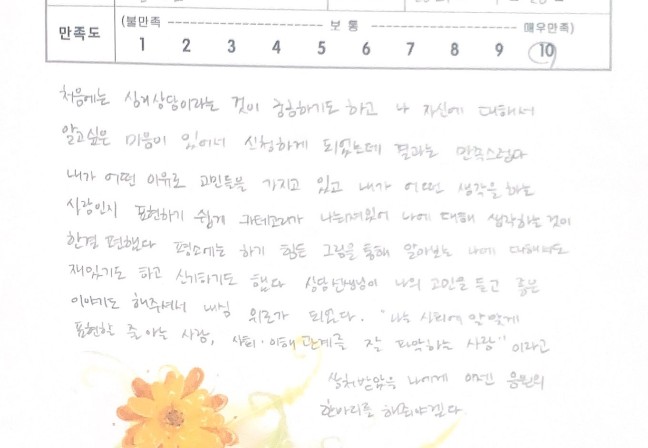 만족도
(불만족 보 통 매우만족)
1 2 3 4 5 6 7 8 9 10
처음에는 심리상담이라는 것이 궁금하기도 하고 나 자신에 대해서
알고싶은 마음이 있어서 신청하게 되었는데 결과는 만족스럽다
내가 어떤 이유로 고민들을 가지고 있고 내가 어떤 생각을 하는
사람인지 표현하기 쉽게 카테고리가 나눠져있어 나에 대해 생각하는것이
한결 편했다 평소에는 하기 힘든 그림을 통해 알아보는 나에 대해서도
재밌기도 하고 신기하기도 했다 상담선생님이 나의 고민을 듣고 좋은
이야기도 해주셔서 내심 위로가 되었다. "나는 사회에 알맞게
표현할 줄 아는 사람, 사회·이해관계를 잘 파악하는 사람" 이라고
상처받았을 나에게 이젠 응원의
한마디를 해줘야겠다.